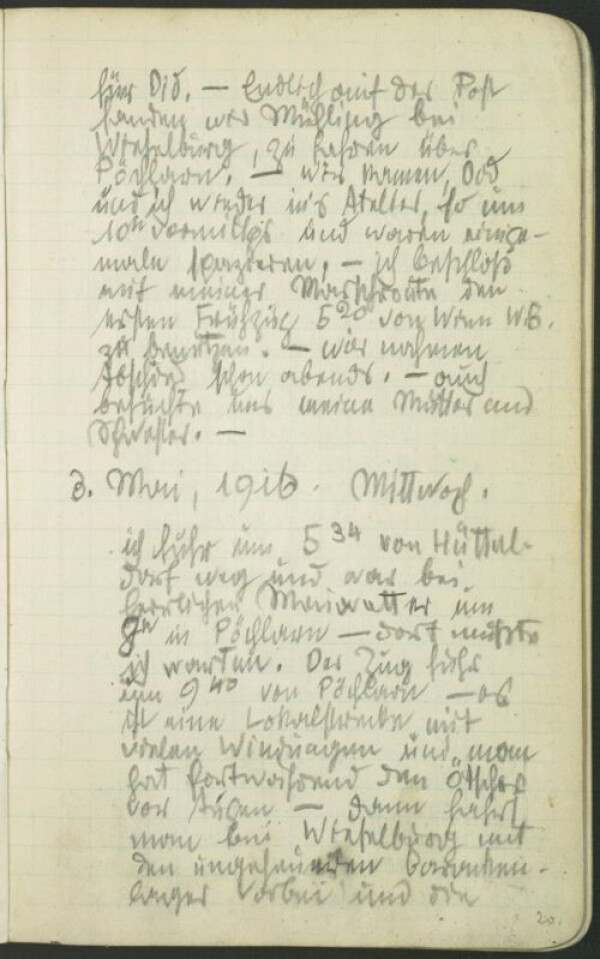 für Did. — Endlich auf der Post
fanden wir Mühling bei
Wieselburg, zu fahren über
Pöchlarn. — wir kamen,
und ich wieder in's Atelier, so um
10h vormittgs und waren einige-
male spazieren. — ich beschloß
mit meiner Marschroute den
ersten Frühzug 5 20 von Wien WB.
zu benützen. — wir nahmen
Abschied schon abends. — auch
besuchte uns meine Mutter und
Schwester. —
3. Mai, 1916. Mittwoch.
ich fuhr um 5 34 von Hüttel-
dorf weg und war bei
herrlichem Maiwetter um
8h in Pöchlarn — dort mußte
ich warten. Der Zug fuhr
um 9 40 von Pöchlarn — es
ist eine Lokalstrecke mit
vielen Windungen und man
hat fortwährend den Ötscher
vor Augen — dann fährt
man bei Wieselburg mit
den ungeheueren Baracken-
lager vorbei und die
20.